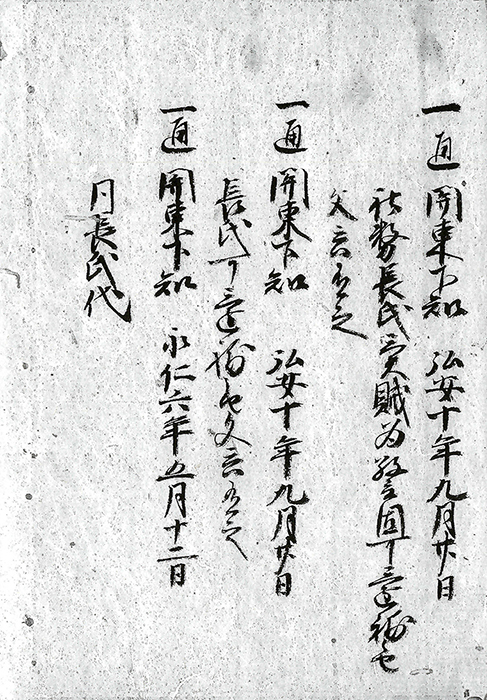 一通 関東下知 弘安十年九月廿日
社務長氏異賊為警固可還補
文言之
一通 関東下知 弘安十年九月廿日
長氏可還補文言之
一通 関東下知 永仁六年五月十二日
同長氏代